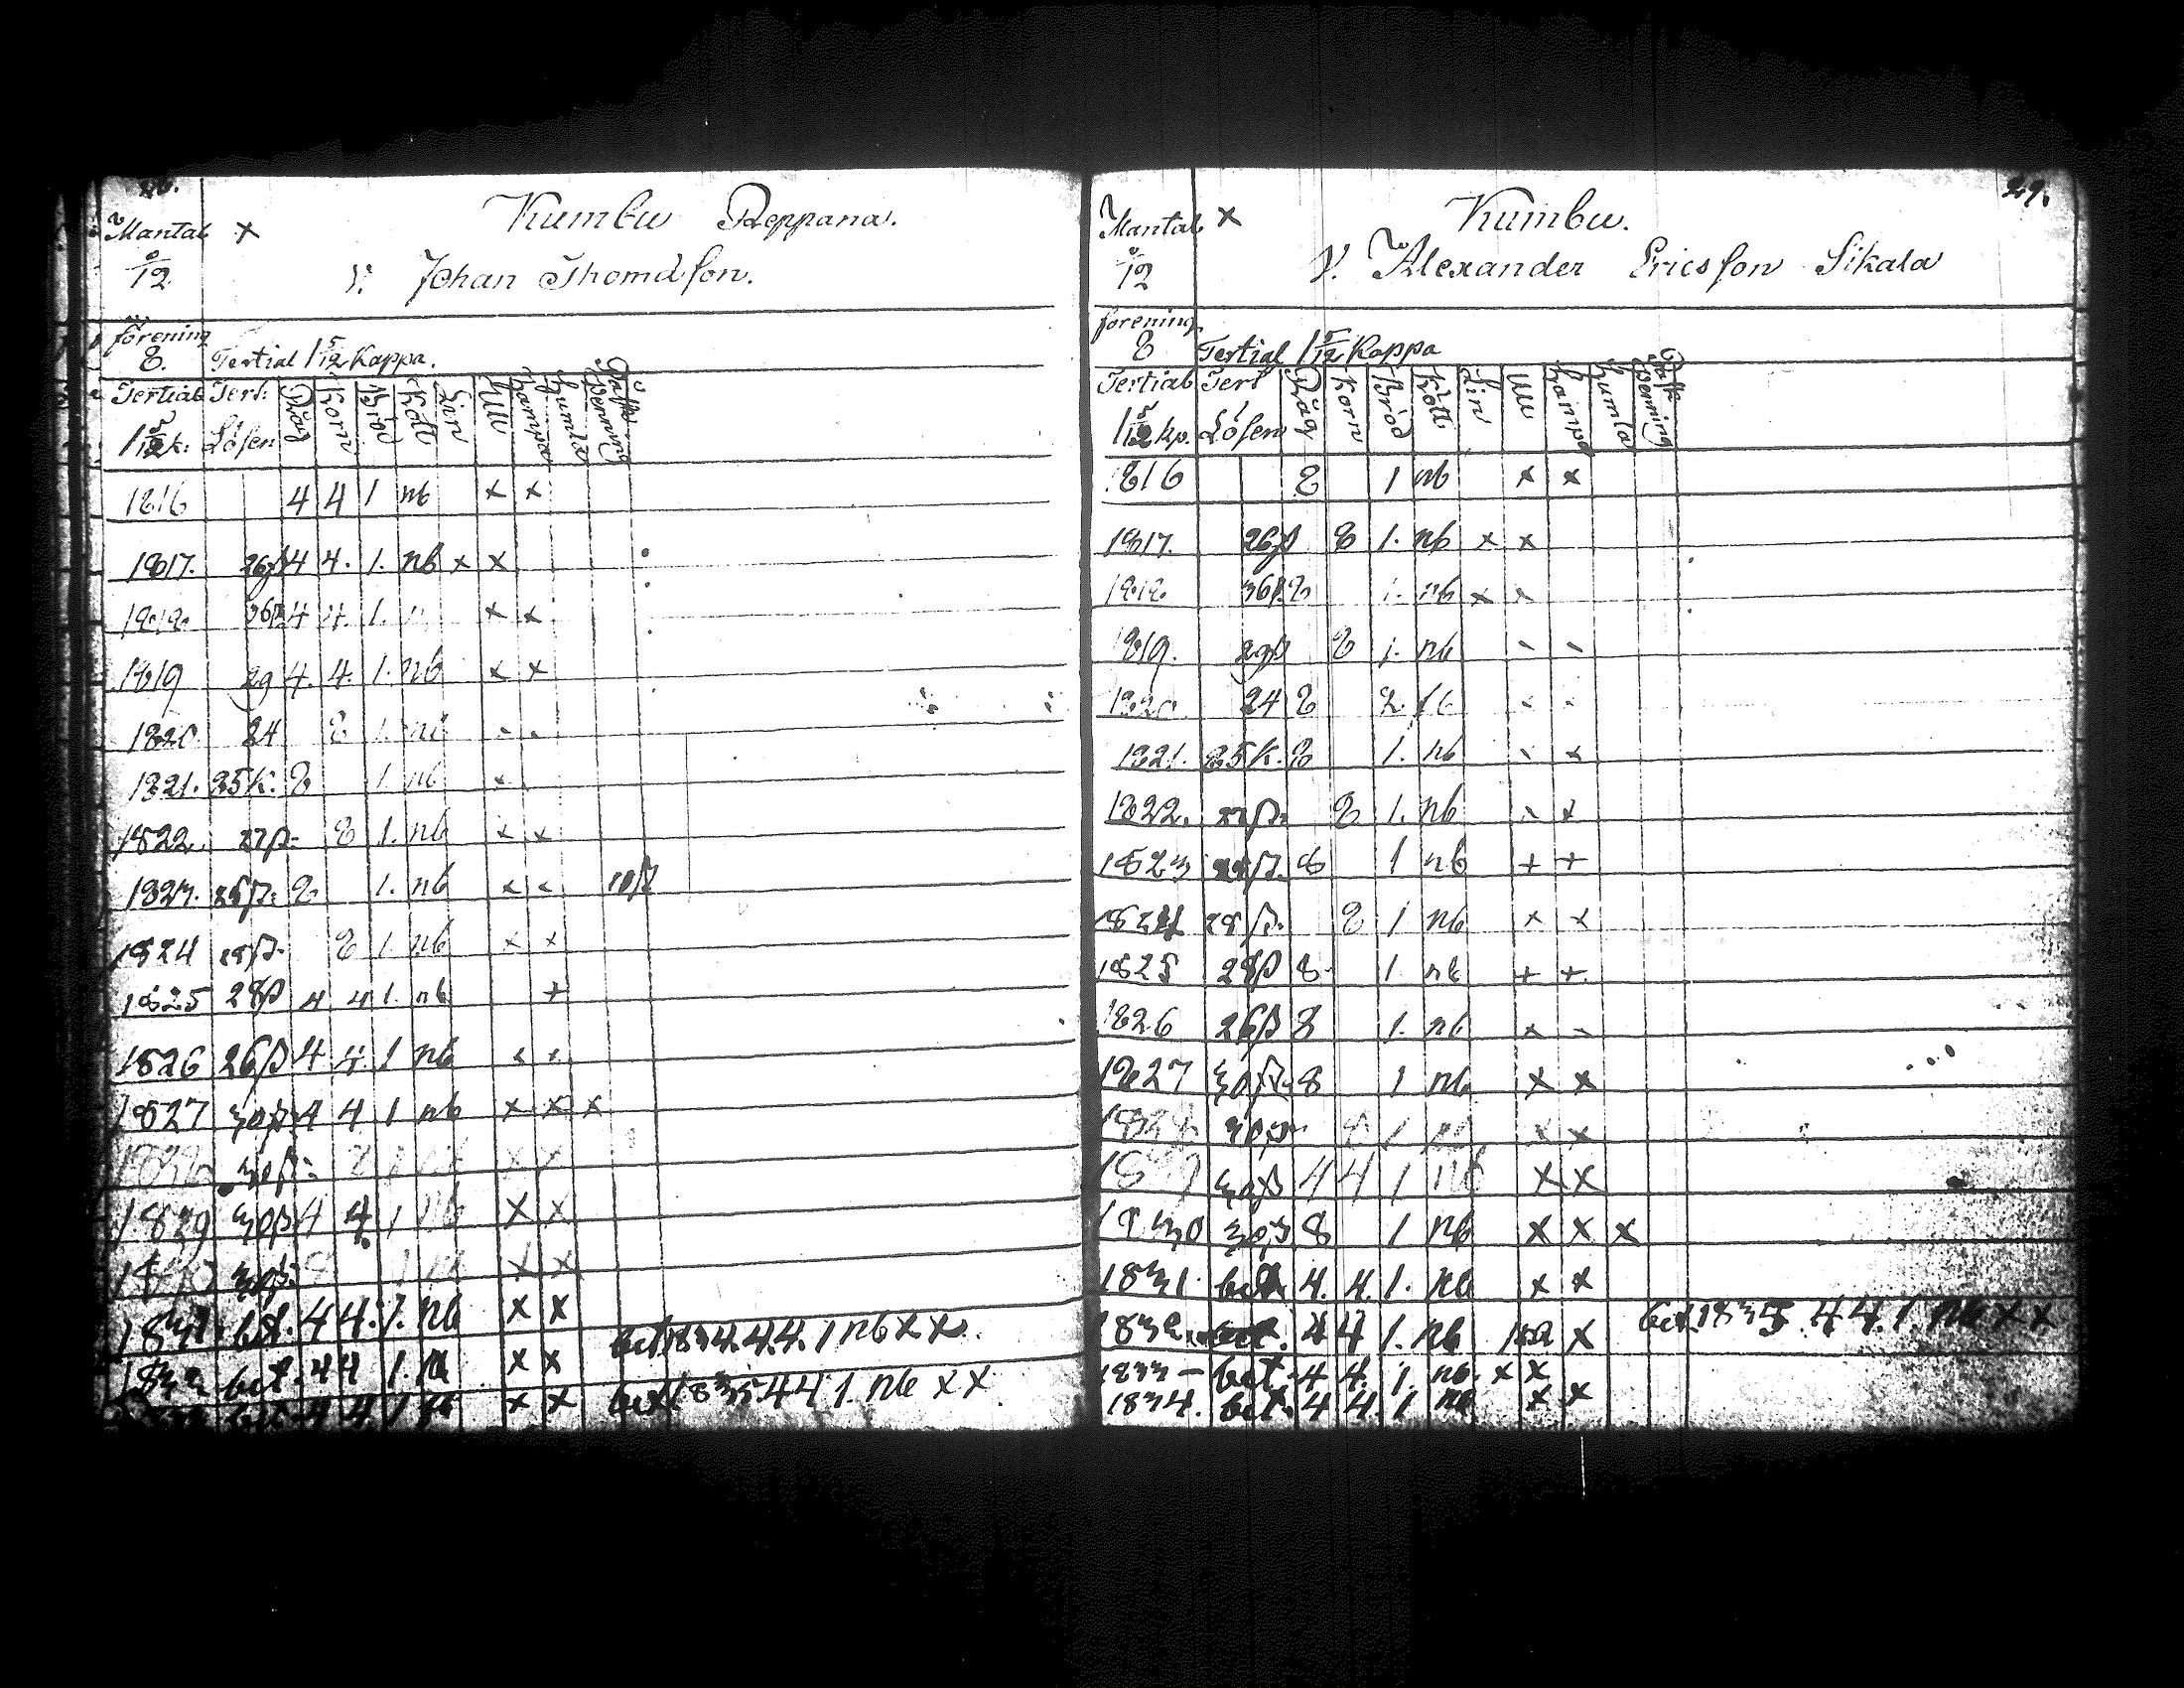 Mantal x Kumbu Reppana.
12 V. Johan Thomasson.
förening
8. Tertial 1 5/12 Kappa.
Tertial Tert: Råg Korn Bröd Kött Lin Ull Hampa Humla Påsk Penning
1 5/12 k: Lösen
1816 4 4 1 nb x x
1817. 26β 4 4. 1. nb x x
1818 36β 4 4. 1. x x
1819 29 4. 4. 1. nb x x
1820 24 8 1. nb
1821. 25 K. 8 1. nb x
1822. 27β. 8 1. nb x x
1823. 8 1. nb x x
1824 28β. 8 1. nb x x
1825 28β 4 4 1. nb +
1826 26β 4 4. 1 nb x x
1827 30β 4 4 1. nb x x x
30β. 8 x x
1829 30β 4 4. 1 nb x x
30β. 8 1 nb x x
1831. bet. 4 4. 1. nb x x
1832 bet. 4 4 1. nb x x bet 1834. 4. 4. 1 nb x x.
bet. 4 4. 1 nb x x bet 1835 4 4 1. nb x x
29.
Mantal x Kumbu.
12 V. Alexander Ericsson Sikala
förening
8 Tertial 1 5/12 Kappa
Tertial Tert Råg Korn Bröd Kött Lin Ull Hampa Humla Påsk Penning
1 5/12 kp. Lösen
1816 8 1 nb x x
1817. 26β 8 1. nb x x
1818 36β. 8 1. nb x x
1819. 29β 8 1. nb
1820. 24 8
1821. 25 K. 8 1. nb x x
1822. 27β. 8 1. nb x x
1823 8 1 nb + +
1824 28β. 8 1 nb x x
1825 28β 8 1 nb + +
1826 26β 8 1. nb x
1827 30β. 8 1 nb x x
1828 30β 8 1 nb x x
30β 4 4 1 nb x x
1830 30β 8 1 nb x x x
1831. bet. 4. 4. 1. nb x x
1832 bet. 4 4 1. nb x bet 1835. 4 4. 1. nb x x
1833 – bet. 4 4. 1. nb. x x
1834. bet. 4 4. 1 nb x x